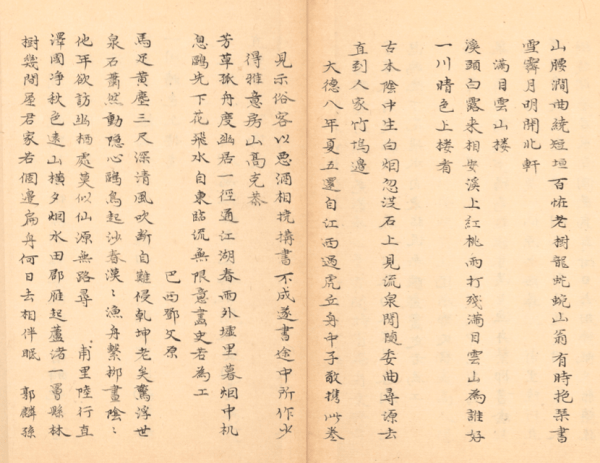 山腰澗曲繞短垣百怪老樹龍蛇蜿山翁有時抱琴書
雪霽月明開北軒
滿目雲山樓
溪頭白露來相安溪上紅桃雨打殘滿目雲山為誰好
一川晴色上樓看
古木陰中生白烟忽從石上見流泉閒隨委曲尋源去
直到人家竹塢邊
大德八年夏五還自江西過虎丘身中子敬携此卷
見示俗客以惡酒相撓搆書不成遂書途中所作少
得雅意房山高克恭
芳草孤舟度幽居一徑通江湖春雨外墟里暮烟中机
息鷗先下花飛水自東臨流無限意畫史若為工
巴西鄧文原
馬足黃塵三尺深清風吹斷自難侵乾坤老矣驚浮世
泉石蕭然動隱心鷗鳥起沙春漠〻漁舟繫挷畫陰〻
他年欲訪幽栖處莫似仙源無路尋 甫里陸行直
澤國净秋色遠山橫夕烟水田郡雁起蘆渚一罾懸林
樹幾間屋君家若個邊扁舟何日去相伴眠 郭麟孫